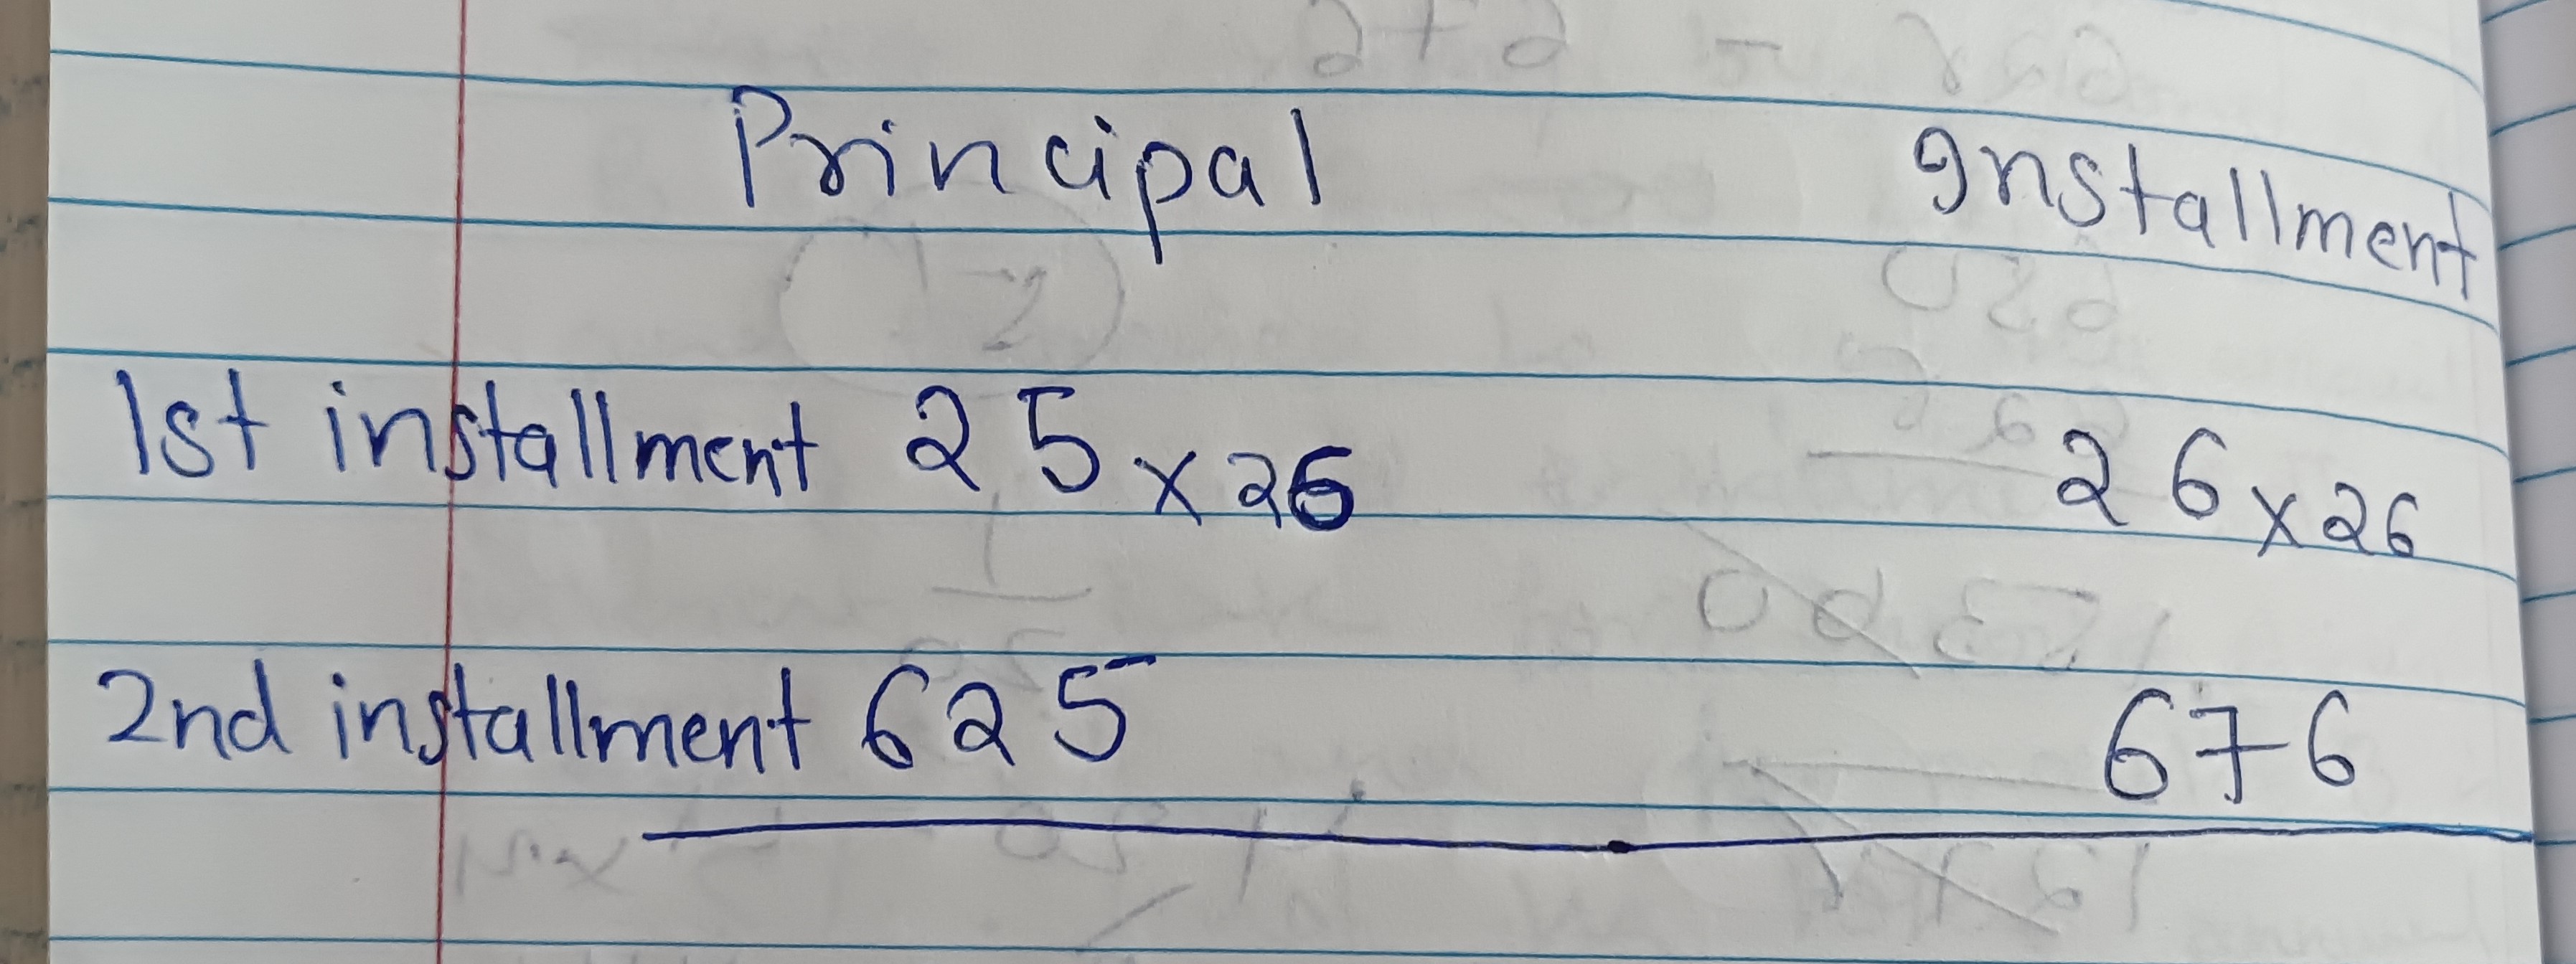 Principal Installment
1st installment 25 x 26 26 x 26
2nd installment 625 676